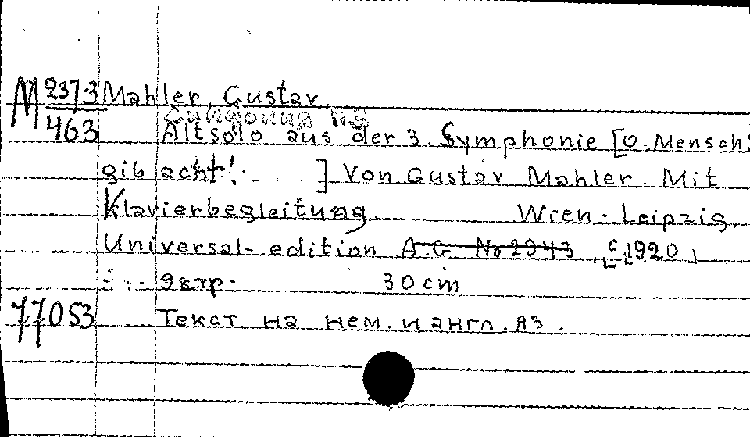 M 2373 Mahler, Gustav
463 Altsolo aus der 3. Symphonie [O. Mensch:
gib acht! ] Von Gustav Mahler Mit
Klavierbegleitung Wien - Leipzig
Universal-edition A.G. No 2943 [c 1920]
9 стр. 30 cm
77053 Текст на нем. и англ. яз.